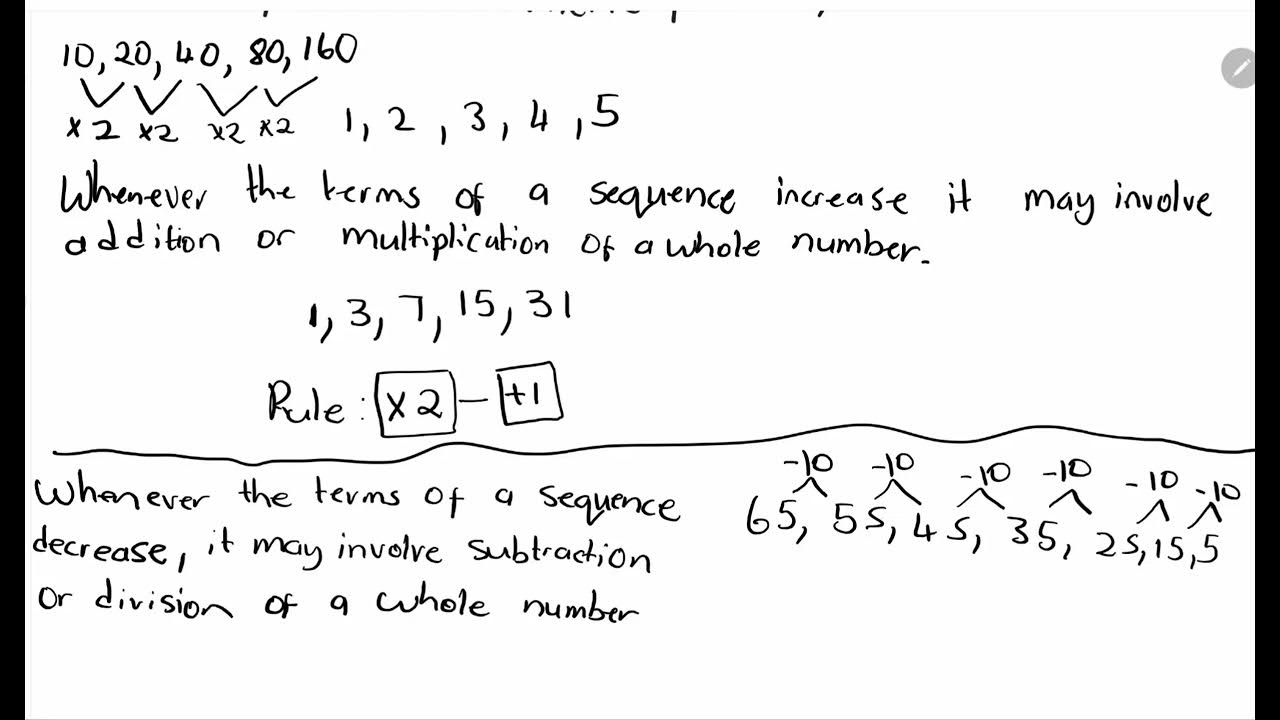 10, 20, 40, 80, 160
×2 ×2 ×2 ×2
1, 2, 3, 4, 5
Whenever the terms of a sequence increase it may involve
addition or multiplication of a whole number.
1, 3, 7, 15, 31
Rule: ×2 – +1
-10 -10 -10 -10 -10 -10
65, 55, 45, 35, 25, 15, 5
Whenever the terms of a sequence
decrease, it may involve subtraction
or division of a whole number